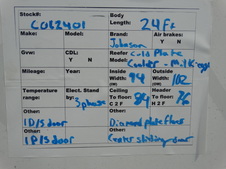 Stock#: Body
CO82401 Length: 24Ft
Make: Model: Brand: Air brakes:
Johnson Y N
Gvw: CDL: Reefer Cold Plate
Y N Model: Cooler - Milk
Mileage: Year: Inside Outside
Width: 94 Width: 102
Temperature Elect. Stand Ceiling Header
range: by: 3phase To floor: 84 To floor: 76
C 2 F H 2 F
Other: Other:
1D/S door Diamond plate floors
Other: Other:
1P/S door Center sliding door